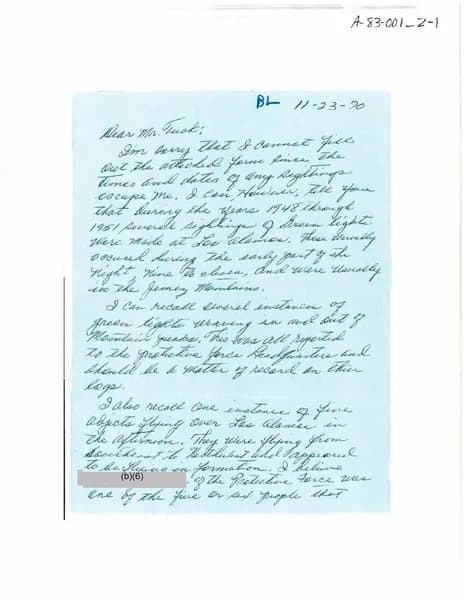 A-83-001_2-1
BL 11-23-70
Dear Mr. Tuck:
I'm sorry that I cannot fill
out the attached form since the
times and dates of any sightings
escape me. I can, however, tell you
that during the years 1948 through
1951 several sightings of Green lights
were made at Los Alamos. These usually
occured during the early part of the
night, nine to eleven, and were usually
in the Jemez Mountains.
I can recall several instances of
green lights weaving in and out of
Mountain peaks. This was all reported
to the protective force Headquarters and
should be a matter of record on their
logs.
I also recall one instance of five
objects flying over Los Alamos in
the afternoon. They were flying from
Southeast to Northwest and appeared
to be flying in formation. I believe
(b)(6) of the Protective Force was
one of the five or six people that